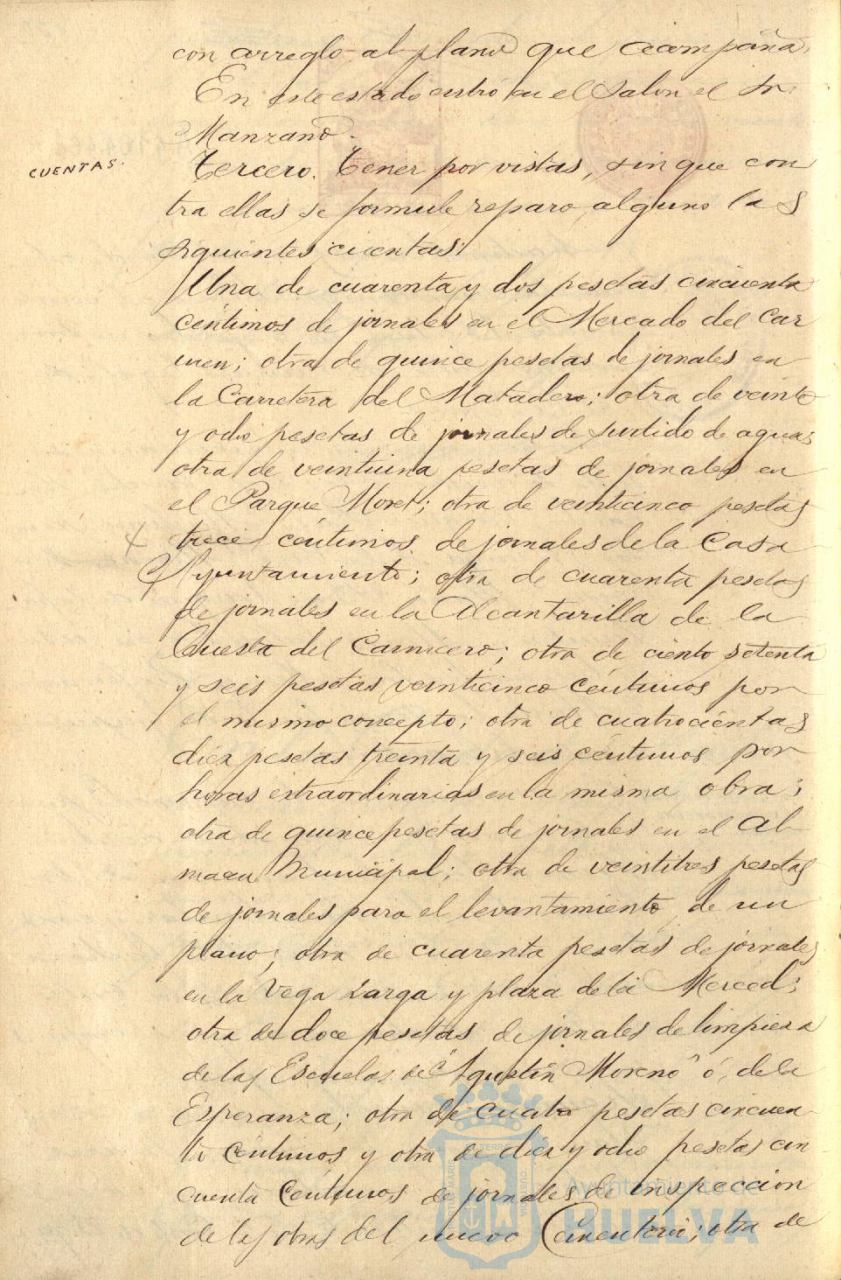 con arreglo al plano que acompaña.
En este estado entró en el Salon el Sr.
Manzano.
CUENTAS.
Tercero. Tener por vistas, sin que con
tra ellas se formule reparo alguno las
siguientes cuentas:
Una de cuarenta y dos pesetas cincuenta
céntimos de jornales en el Mercado del Car
men; otra de quince pesetas de jornales en
la Carretera del Matadero; otra de veinte
y ocho pesetas de jornales de surtido de aguas;
otra de veintiuna pesetas de jornales en
el Parque Moret; otra de veinticinco pesetas
trece céntimos de jornales de la Casa
Ayuntamiento; otra de cuarenta pesetas
de jornales en la Alcantarilla de la
Cuesta del Carnicero; otra de ciento setenta
y seis pesetas veinticinco céntimos por
el mismo concepto; otra de cuatrocientas
diez pesetas treinta y seis céntimos por
horas extraordinarias en la misma obra;
otra de quince pesetas de jornales en el Al
macen Municipal; otra de veintitres pesetas
de jornales para el levantamiento de un
plano; otra de cuarenta pesetas de jornales
en la Vega Larga y plaza de la Merced;
otra de doce pesetas de jornales de limpieza
de las Escuelas de "Agustin Moreno" ó de la
Esperanza; otra de cuatro pesetas cincuen-
ta céntimos y otra de diez y ocho pesetas cin
cuenta céntimos de jornales de inspeccion
de las obras del nuevo Cementerio; otra de
Ayuntamiento de
HUELVA